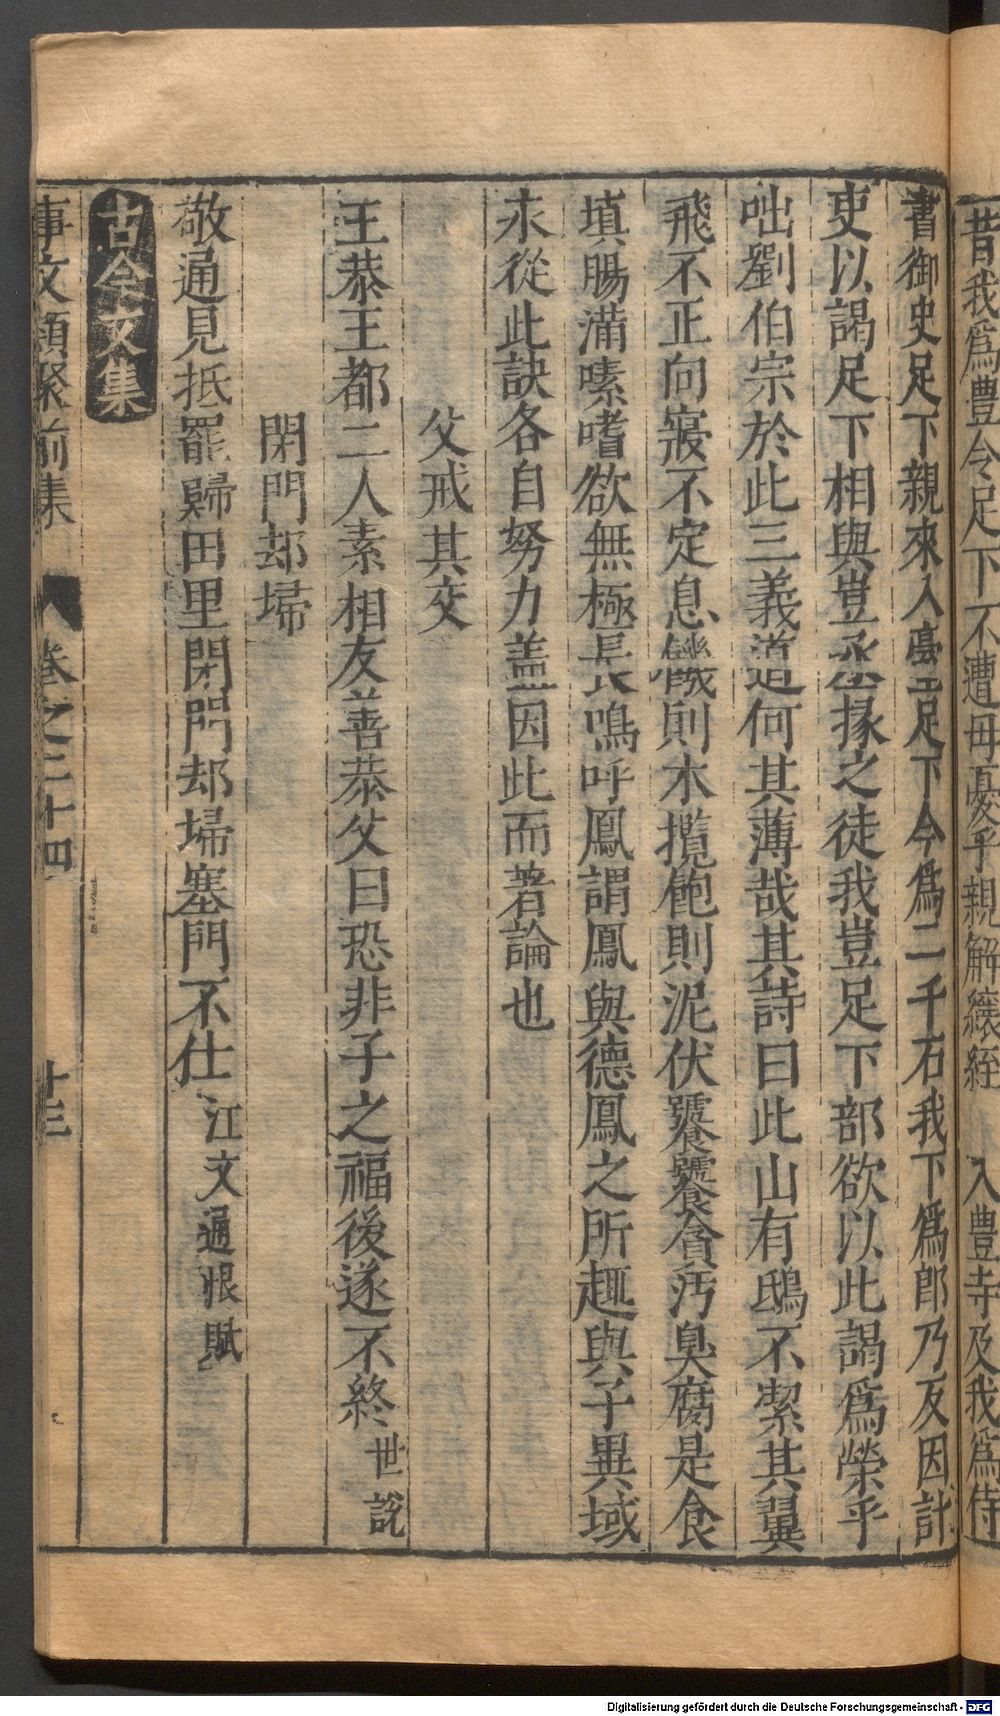 昔我爲豊令足下不遭母憂乎親解縗絰　入豊寺及我爲侍
書御史足下親來入臺足下今爲二千石我下爲郎乃反因計
吏以謁足下相與豈丞掾之徒我豈足下部欲以此謁爲榮乎
咄劉伯宗於此三義道何其薄哉其詩曰此山有鴟不潔其翼
飛不正向寢不定息饑則木攬飽則泥伏饕餮貪汚臭腐是食
填腸滿嗉嗜欲無極長鳴呼鳳謂鳳與德鳳之所趣與子異域
永從此訣各自努力蓋因此而著論也
父戒其交
王恭王都二人素相友善恭父曰恐非子之福後遂不終世說
閉門却埽
敬通見抵罷歸田里閉門却埽塞門不仕江文通恨賦
古今文集
事文類聚前集　卷之二十四　廿三
Digitalisierung gefördert durch die Deutsche Forschungsgemeinschaft - DFG